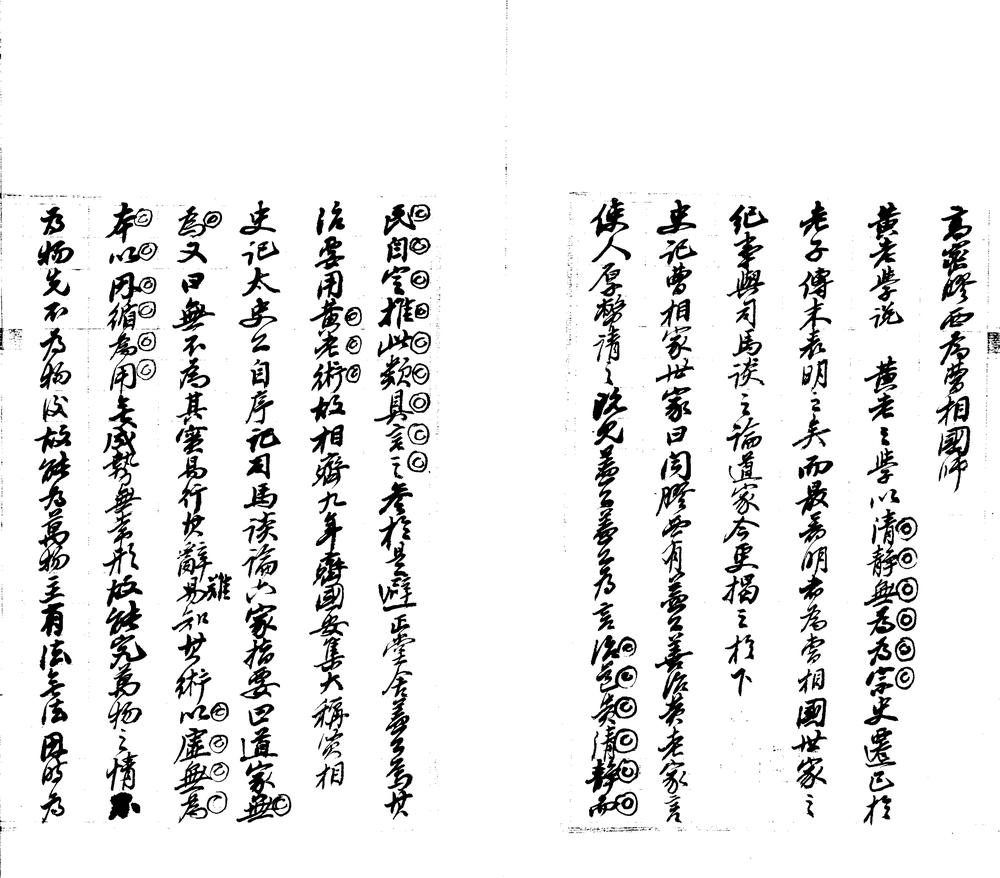 高密膠西為曹相國師
黃老學说　黃老之學以清靜無為為宗史遷已於
老子傳末表明之矣而最為明者為曹相國世家之
紀事與司馬谈之論道家今更揭之於下
史記曹相家世家曰闻膠西有蓋公善治黃老家言
使人厚幣请之既见蓋公蓋公为言治道貴清靜而
民自定推此類具言之參於是避正堂舍蓋公焉其
治要用黃老術故相齊九年齊國安集大稱賢相
史記太史公自序記司馬谈論六家指要曰道家無
為又曰無不為其實易行其辭難易知其術以虛無為
本以因循為用无成勢無常形故能究萬物之情不
为物先不为物後故能为萬物主有法无法因時为